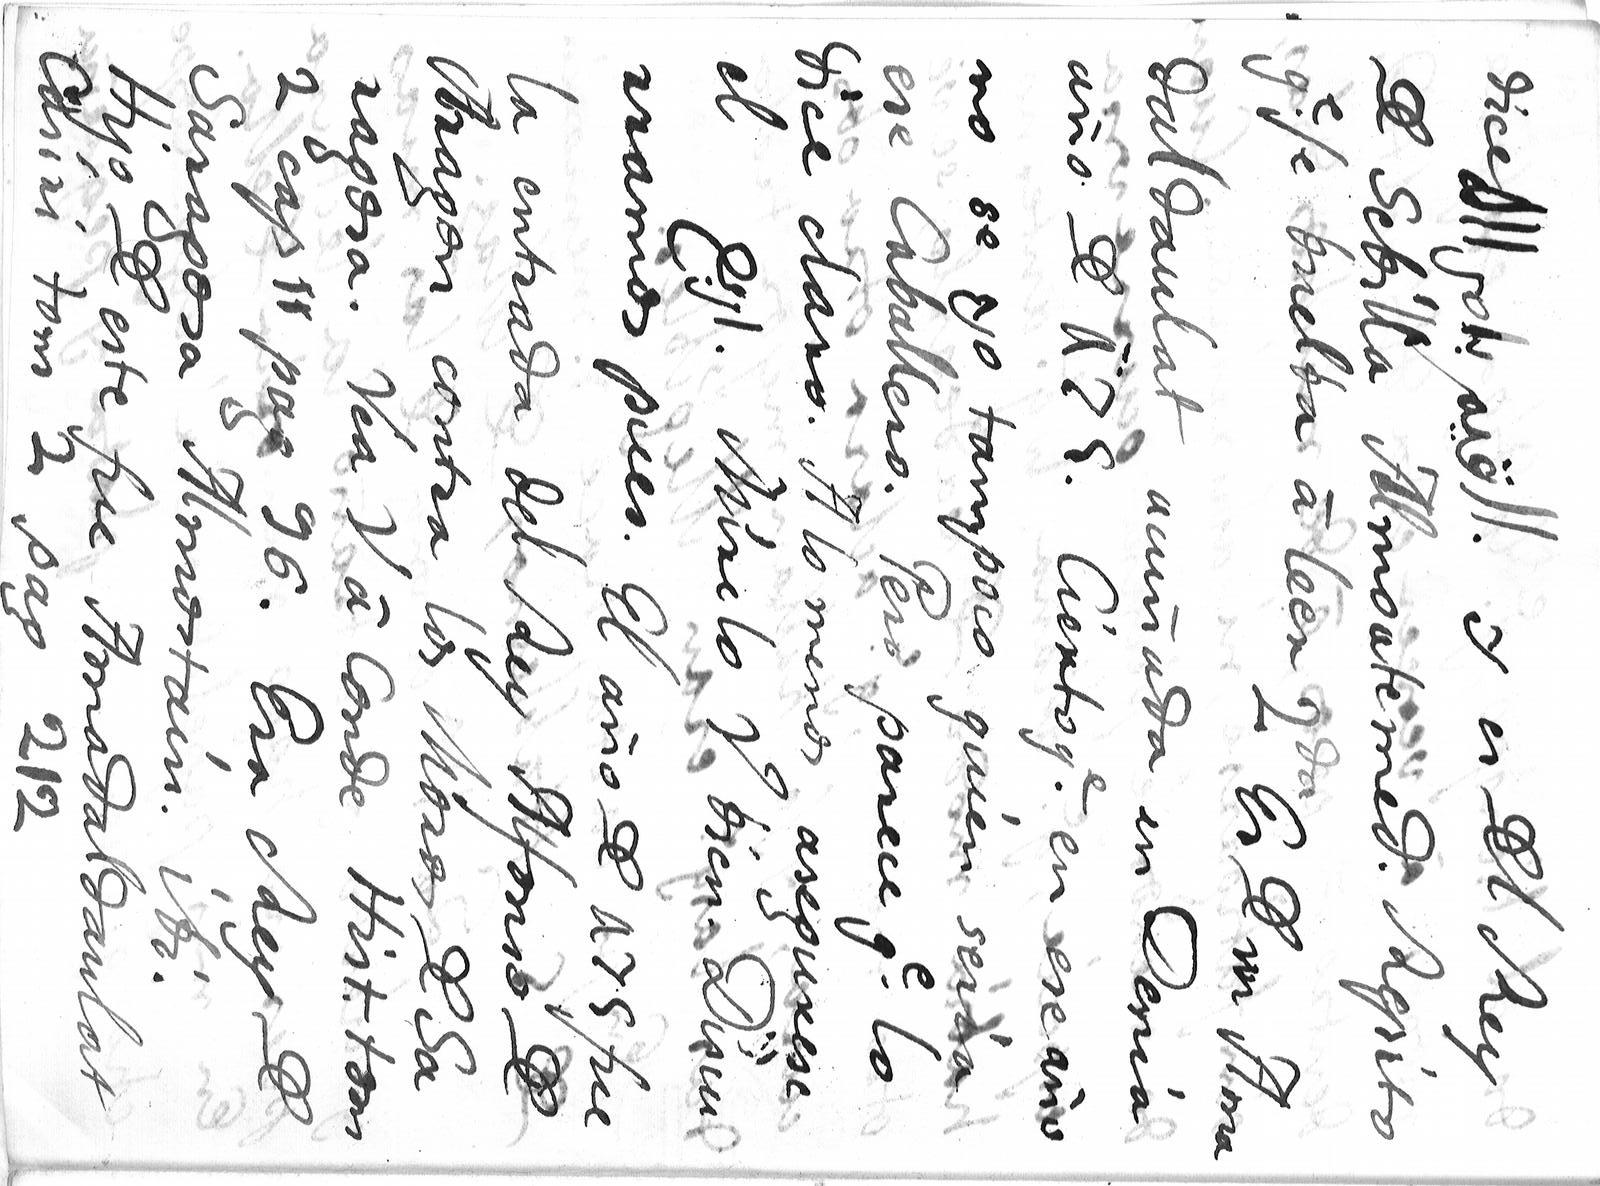 dice yoti añoll. Y es Del Rey
De Sebilla Almoatemed. Repito
qe fe buelba á leer 2 da Es De un Ama
daldaulat acuñada en Denia
año De 475. Cierto qe en ese año
no se yo tampoco quien seria
ese Caballero. Pero parece qe lo
dice claro. A lo menos asegurese
el Eyl. Mirelo V bien. Discu
rramos pues. El año De 475 fue
la entrada del Rey Alfonso De
Aragon contra los Moros De Sa
ragoza. Vea V á Conde Hist. tom
2 cap 11 pag 96. Era Rey De
Saragosa Almostain. ibi.
Hijo De este fue Amadaldaulat
Casiri tom 2 pag 212